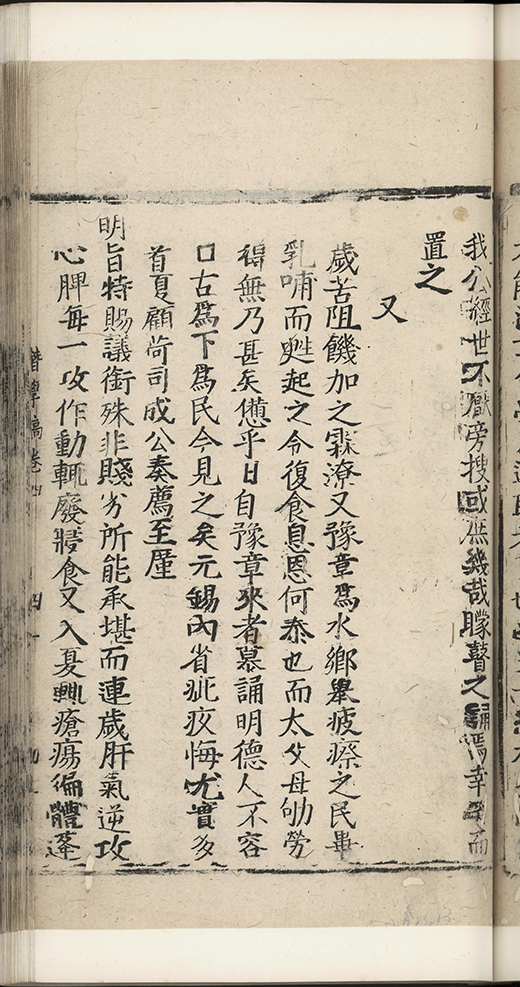 我公經世不厭旁搜或庶幾哉矇瞽之誦焉幸
置之
又
歲苦阻饑加之霖潦又豫章爲水鄉舉疲瘵之民畢
乳哺而甦起之令復食息恩何泰也而太父母劬勞
得無乃甚矣憊乎日自豫章來者慕誦明德人不容
口古爲下爲民今見之矣元錫內省疵疚悔尤實多
首夏顧荷司成公奏薦至廑
明旨特賜議銜殊非賤劣所能承堪而連歲肝氣逆攻
心脾每一攻作動輒廢寢食又入夏輒瘡瘍徧體蓬
潛學稿卷四